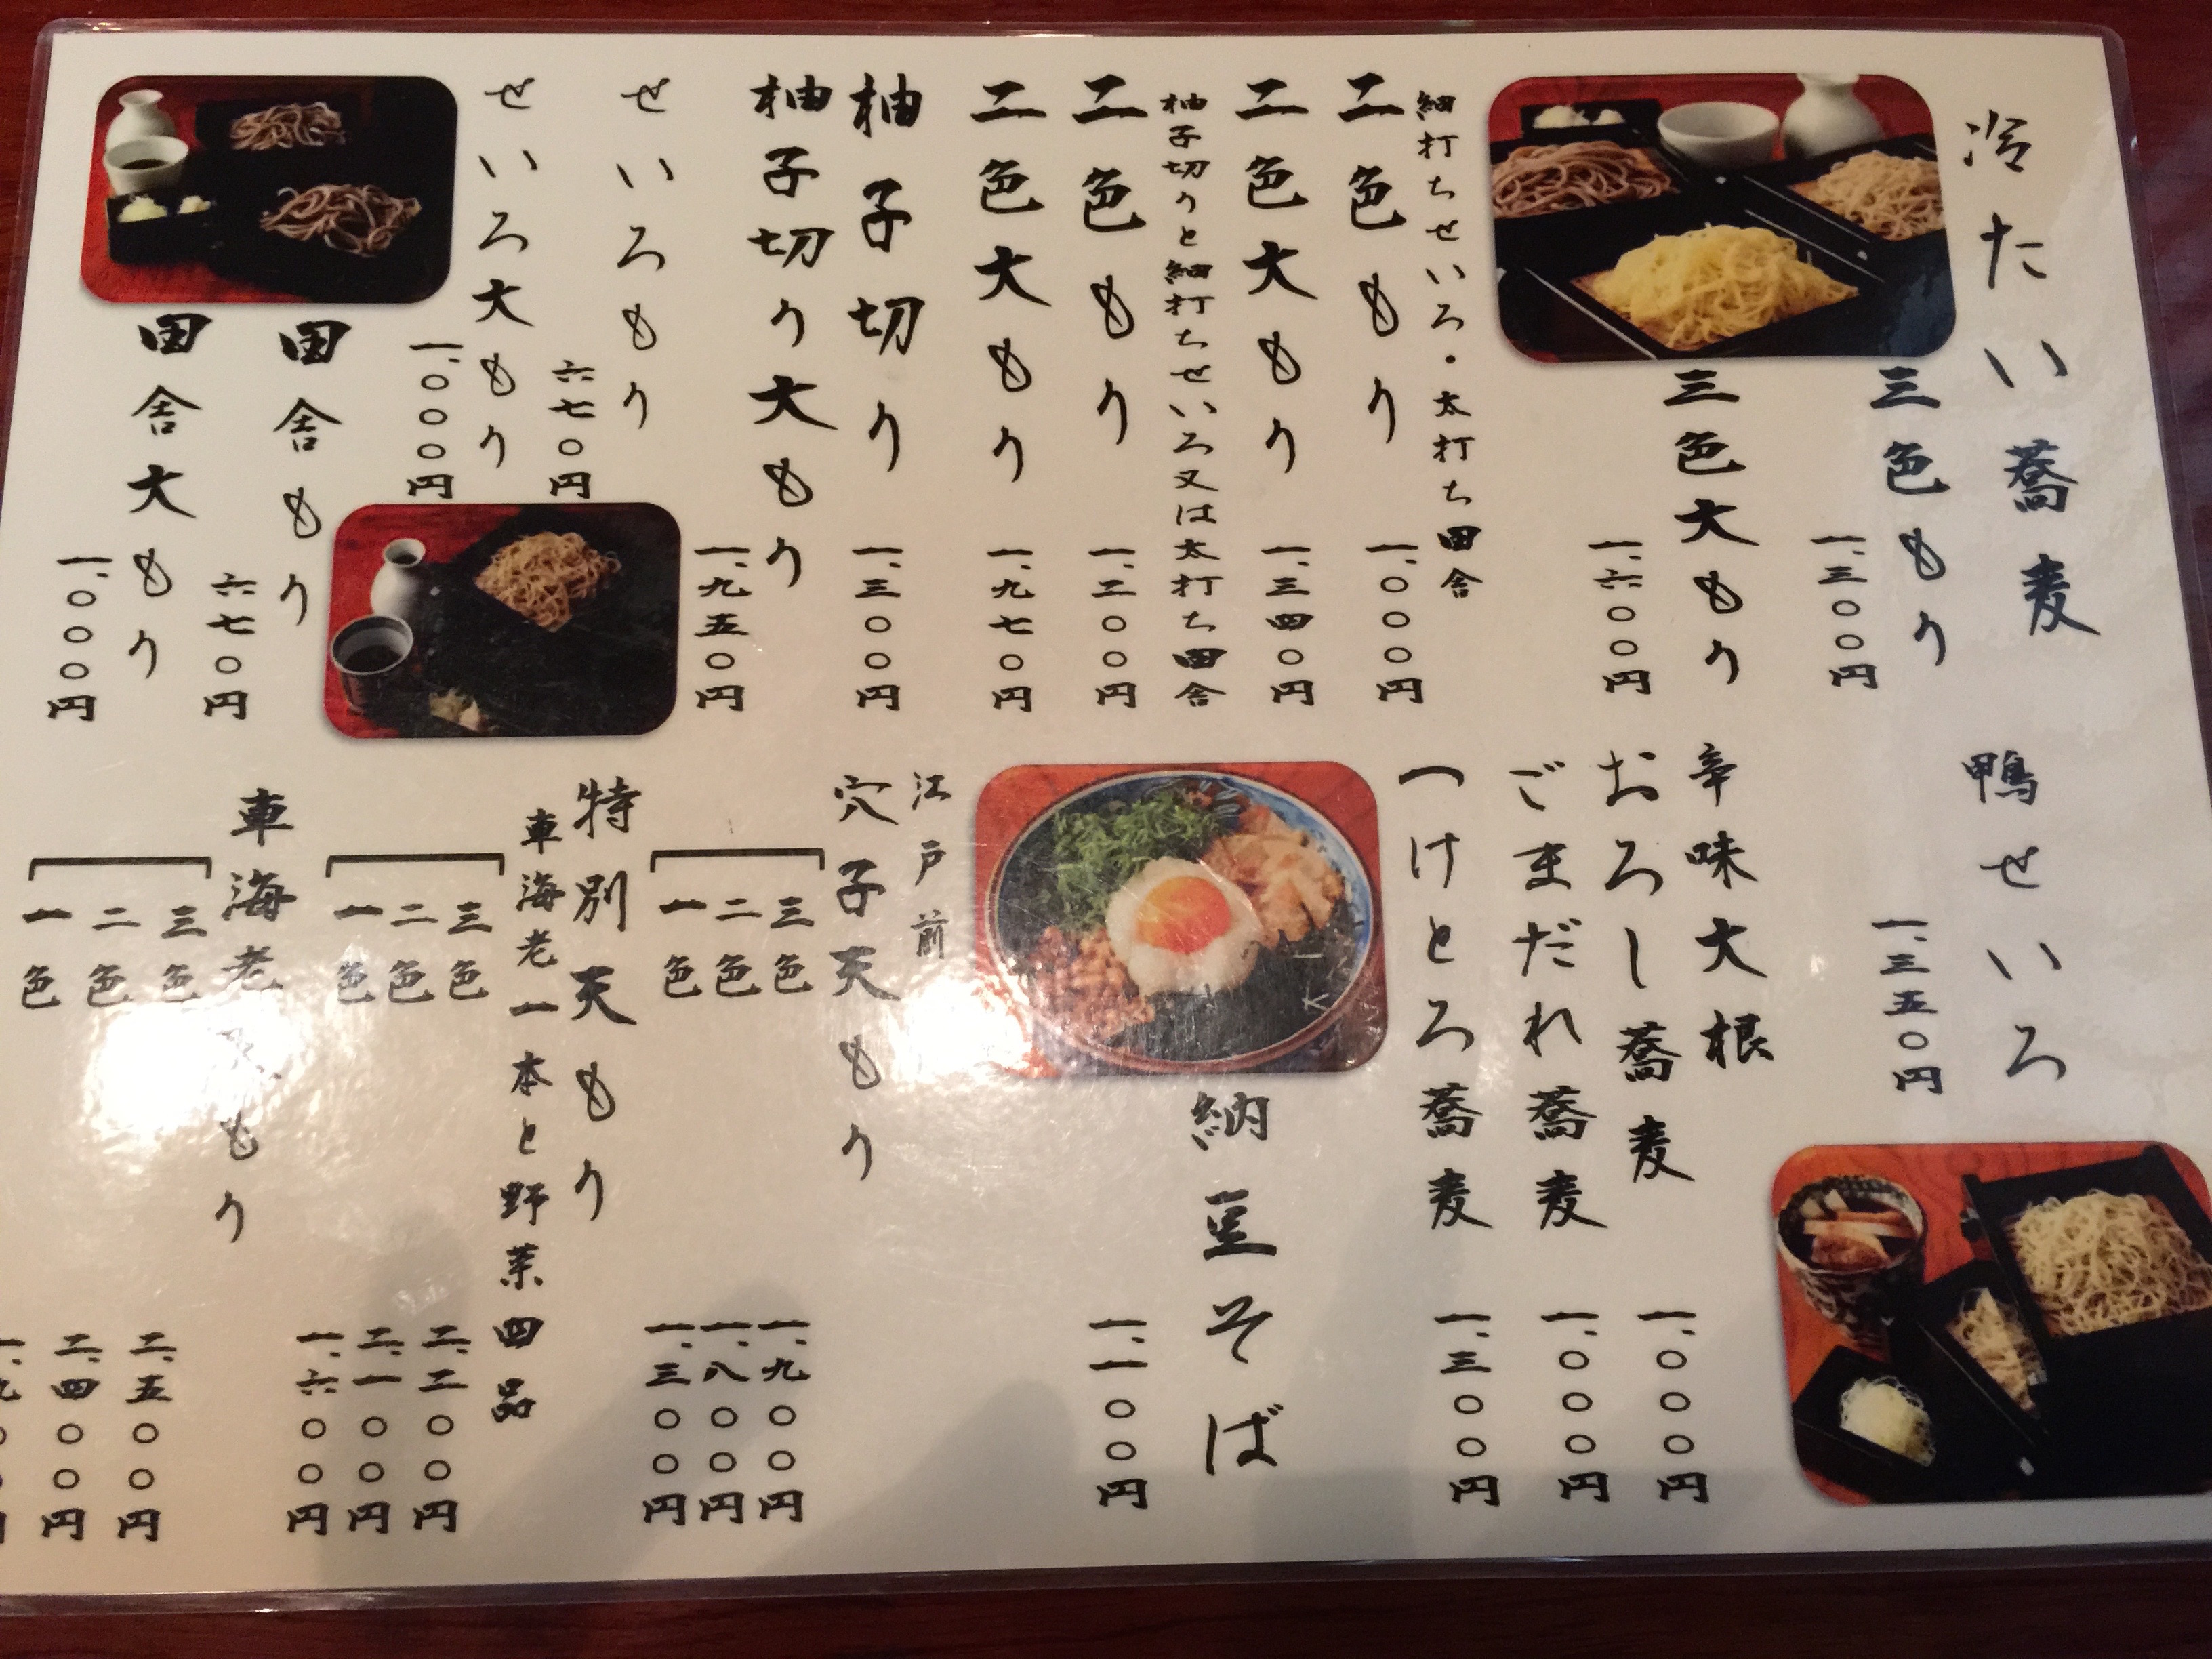 冷たい蕎麦
三色もり
一、三〇〇円
三色大もり
一、六〇〇円
細打ちせいろ・太打ち田舎
二色もり
一、〇〇〇円
二色大もり
一、三四〇円
柚子切りと細打ちせいろ又は太打ち田舎
二色もり
一、二〇〇円
二色大もり
一、九七〇円
柚子切り
一、三〇〇円
柚子切り大もり
一、九五〇円
せいろもり
六七〇円
せいろ大もり
一、〇〇〇円
田舎もり
六七〇円
田舎大もり
一、〇〇〇円
鴨せいろ
一、三五〇円
辛味大根
おろし蕎麦
一、〇〇〇円
ごまだれ蕎麦
一、〇〇〇円
つけとろ蕎麦
一、三〇〇円
納豆そば
一、一〇〇円
江戸前
穴子天もり
三色
一、九〇〇円
二色
一、八〇〇円
一色
一、三〇〇円
特別天もり
車海老一本と野菜四品
三色
二、二〇〇円
二色
二、一〇〇円
一色
一、六〇〇円
車海老天もり
三色
二、五〇〇円
二色
二、四〇〇円
一色